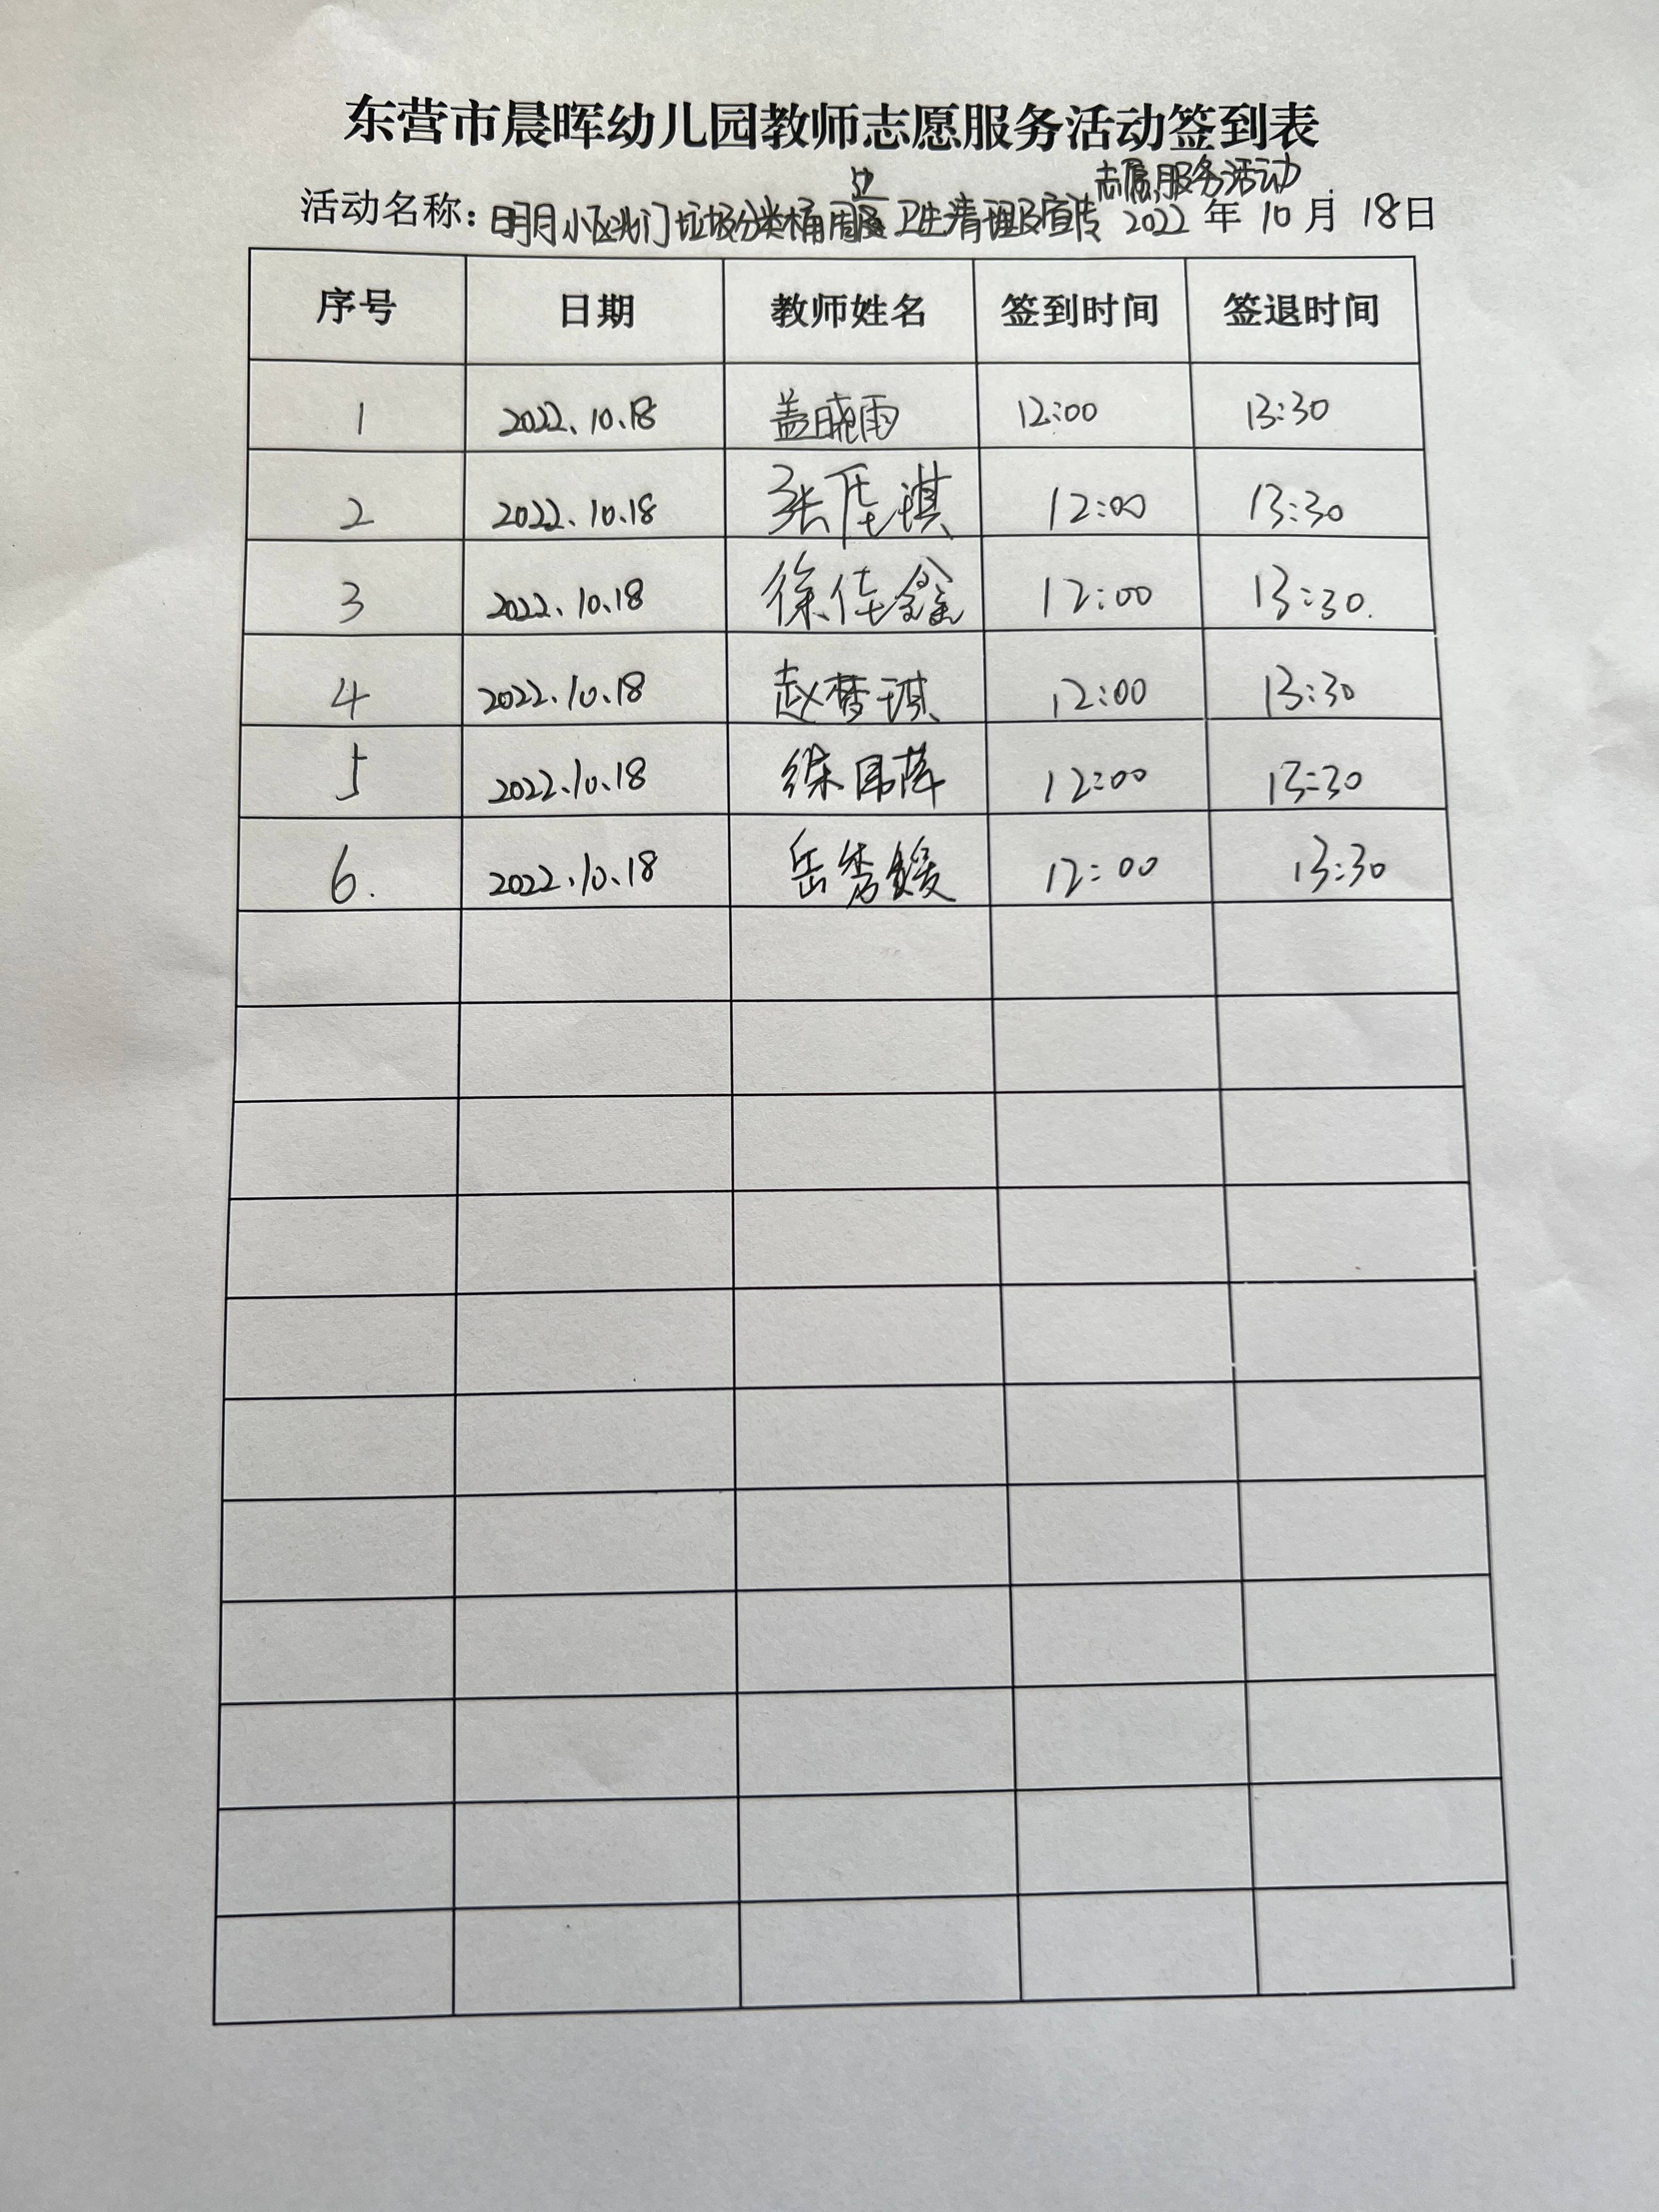 东营市晨晖幼儿园教师志愿服务活动签到表
边 志愿服务活动
活动名称：明月小区北门垃圾分类桶周 卫生清理及宣传 2022 年 10 月 18日
序号 日期 教师姓名 签到时间 签退时间
1 2022.10.18 盖晓雨 12:00 13:30
2 2022.10.18 张 琪 12:00 13:30
3 2022.10.18 徐佳鑫 12:00 13:30.
4 2022.10.18 赵梦琪 12:00 13:30
5 2022.10.18 12:00 13:30
6. 2022.10.18 岳秀媛 12:00 13:30